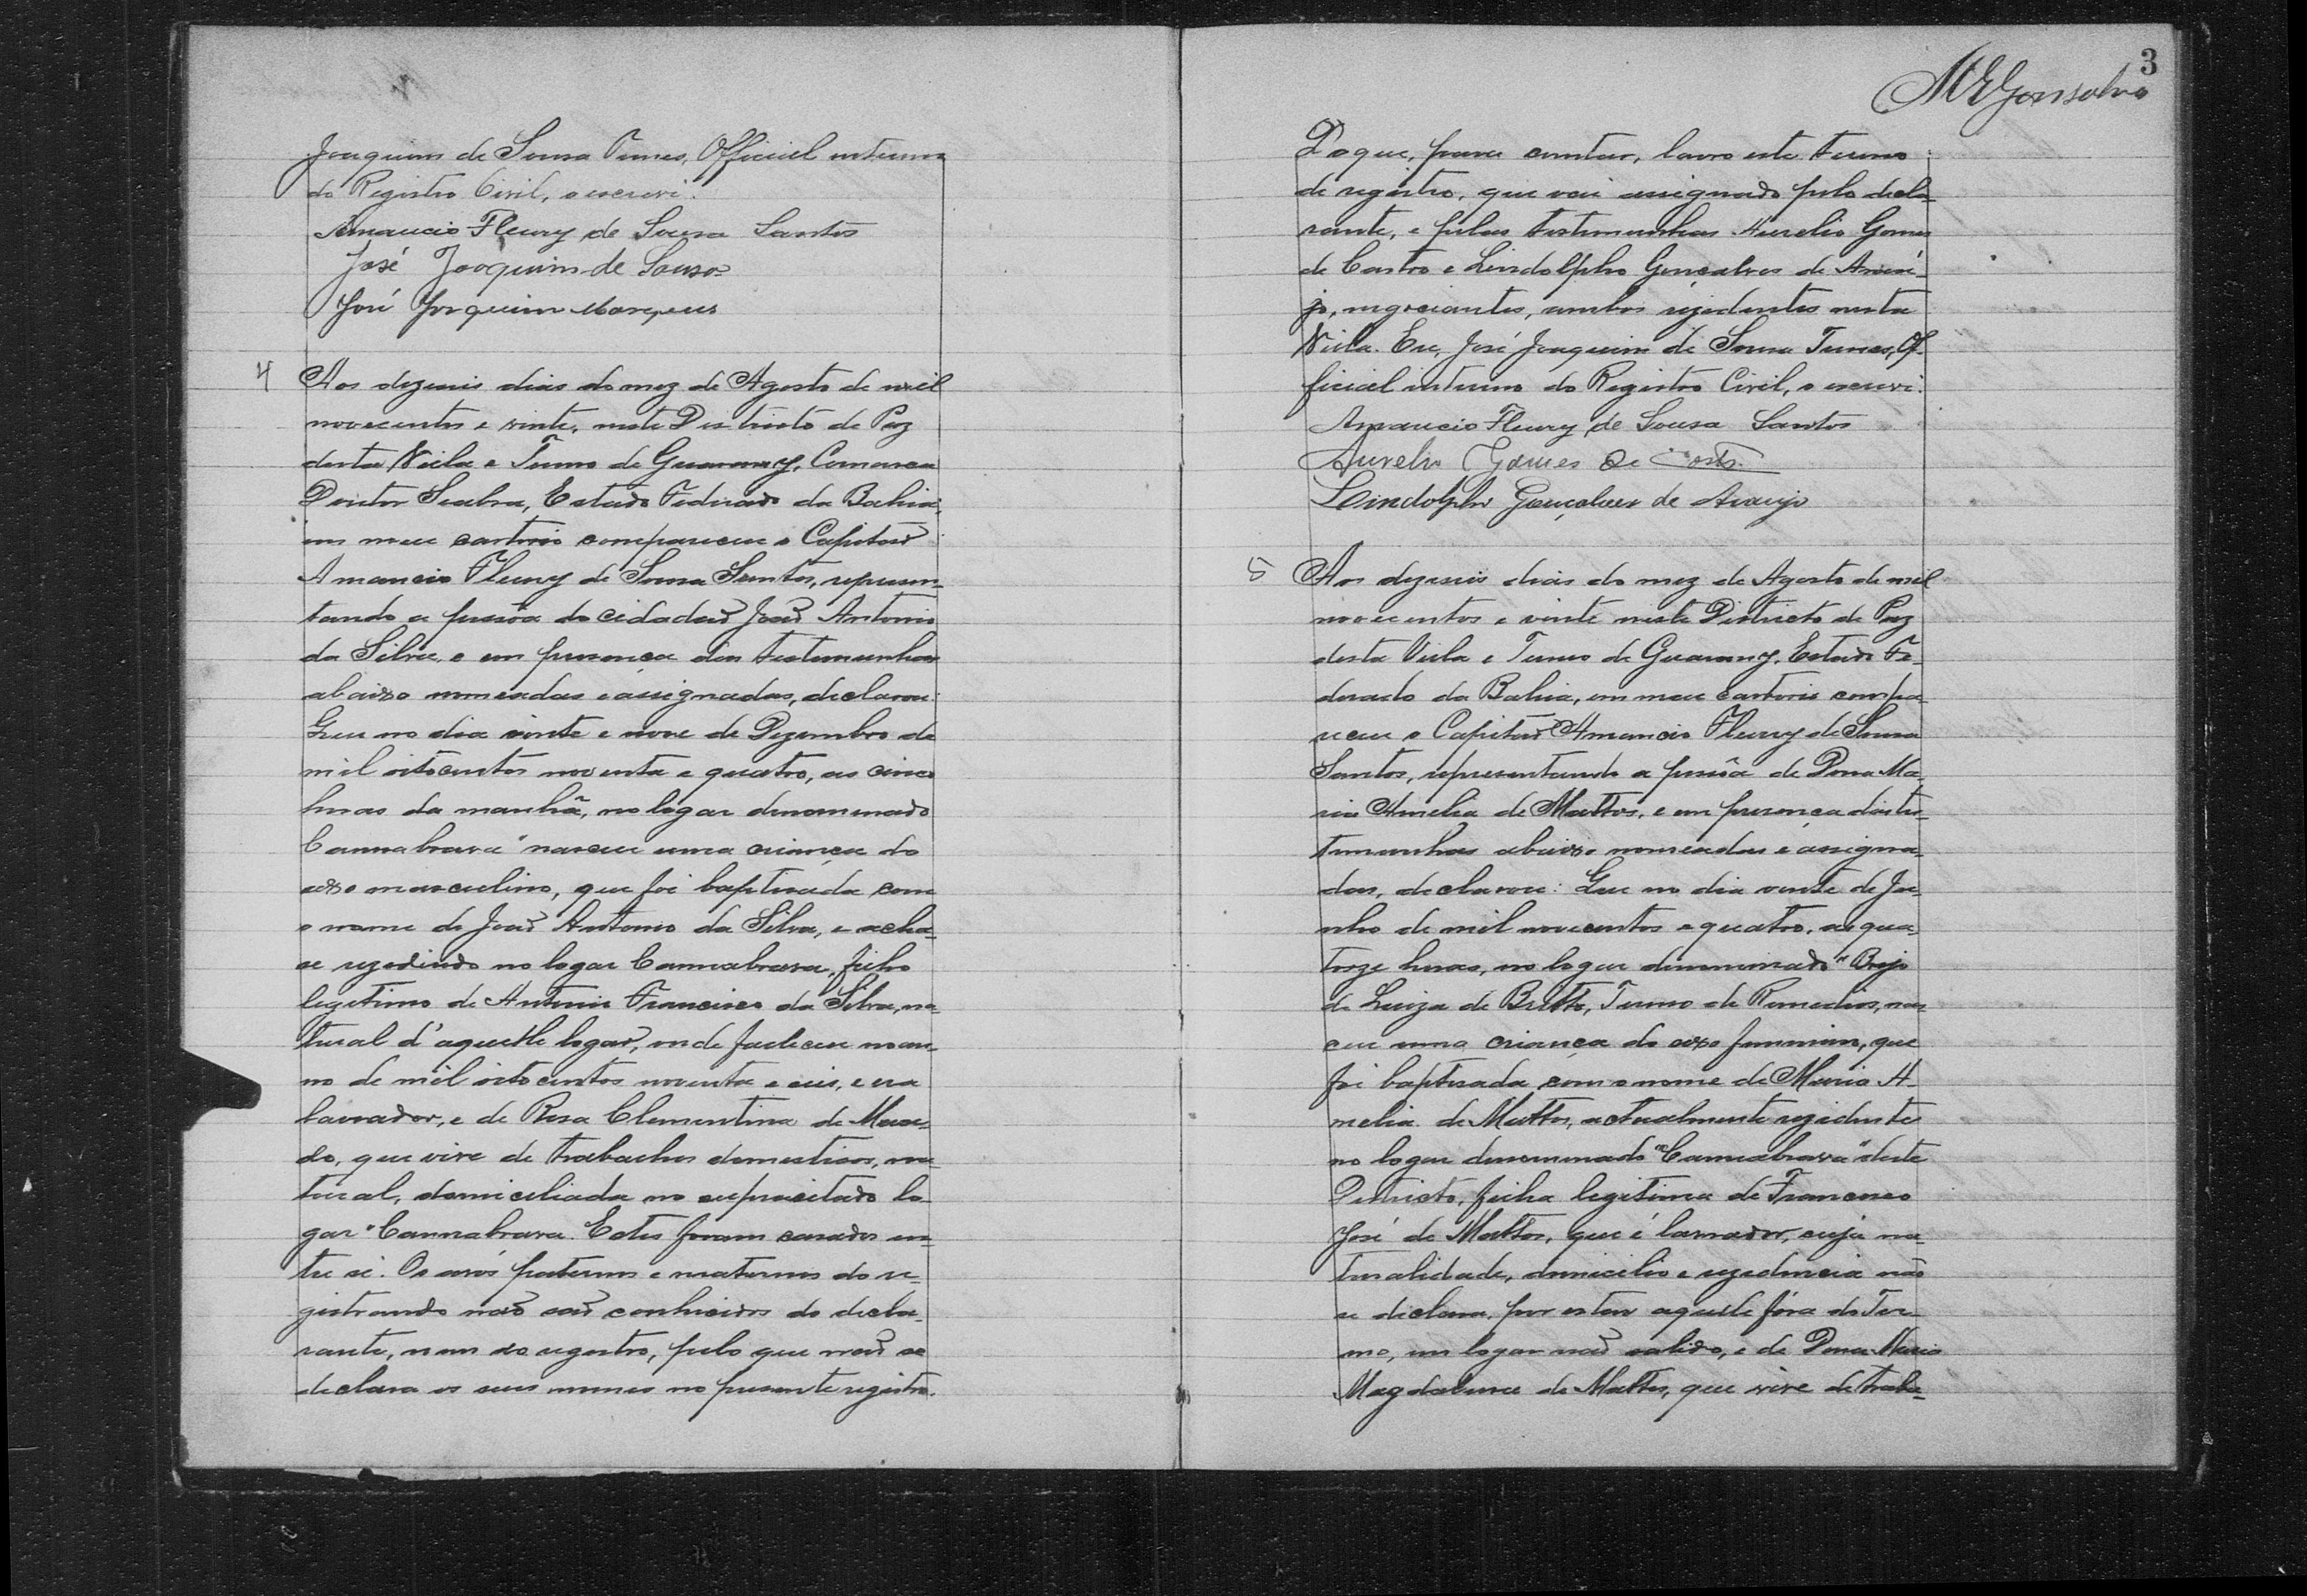 Joaquim de Sousa Tunes, Official interino
do Registro Civil, o escrevi.
Amancio Fleury de Sousa Santos
José Joaquim de Sousa
José Joaquim Marques
4 Aos dezeseis dias do mez de Agosto de mil
novecentos e vinte, neste Districto de Paz
desta Villa e Termo de Guarany, Comarca
Doutor Seabra, Estado Federado da Bahia,
em meu cartorio compareceu o Capitaõ
Amancio Fleury de Sousa Santos, represen-
tando a pessôa do cidadaõ Joaõ Antonio
da Silva, e em presença das testemunhas
abaixo nomeadas e assignadas, declarou:
Que no dia vinte e nove de Dezembro de
mil oitocentos noventa e quatro, as cinco
horas da manhã, no logar denominado
Cannabrava" nasceu uma criança do
sexo masculino, que foi baptisada com
o nome de Joaõ Antonio da Silva, e acha-
se rezedindo no logar Cannabrava, filho
legitimo de Antonio Francisco da Silva, na-
tural d'aquelle logar, onde falleceu no an-
no de mil oitocentos noventa e seis, e era
lavrador, e de Rosa Clementina de Mace-
do, que vive de trabalhos domesticos, na-
tural, domiciliada no supracitado lo-
gar "Cannabrava. Estes foram casados en-
tre si. Os avós paternos e maternos do re-
gistrando naõ saõ conhecidos do decla-
rante, nem do registro, pelo que naõ se
declara os seus nomes no presente registro.
3
MEGonsalves
Do que, para constar, lavro este termo
de registro, que vai assignado pelo decla-
rante, e pelas testemunhas Aurelio Gomes
de Castro e Lindolpho Gonçalves de Arau-
jo, negociantes, ambos rezedentes nesta
Villa. Eu, José Joaquim de Sousa Tunes, Of-
ficial interino do Registro Civil, o escrevi.
Amancio Fleury de Sousa Santos
Aurelio Gomes de Castro
Lindolpho Gonçalves de Araujo
5 Aos dezeseis dias do mez de Agosto de mil
novecentos e vinte neste Districto de Paz
desta Villa e Termo de Guarany, Estado Fe-
derado da Bahia, em meu cartorio compa-
receu o Capitaõ Amancio Fleury de Sousa
Santos, representando a pessôa de Dona Ma-
ria Amelia de Mattos, e em presença das tes-
temunhas abaixo nomeadas e assigna-
das, declarou: Que no dia vinte de Ju-
nho de mil novecentos e quatro, as qua-
torze horas, no logar denominado "Brejo
de Luiza de Britto, Termo de Remedios, nas-
ceu uma criança do sexo feminino, que
foi baptisada com o nome de Maria A-
melia de Mattos, actualmente rezidente
no logar denominado "Cannabrava" deste
Districto, filha legitima de Francisco
José de Mattos, que é lavrador, cuja na-
turalidade, domicilio e rezedencia naõ
se declara, por estar aquelle fóra do Ter-
mo, em logar naõ sabido, e de Dona Maria
Magdalena de Mattos, que vive de traba-